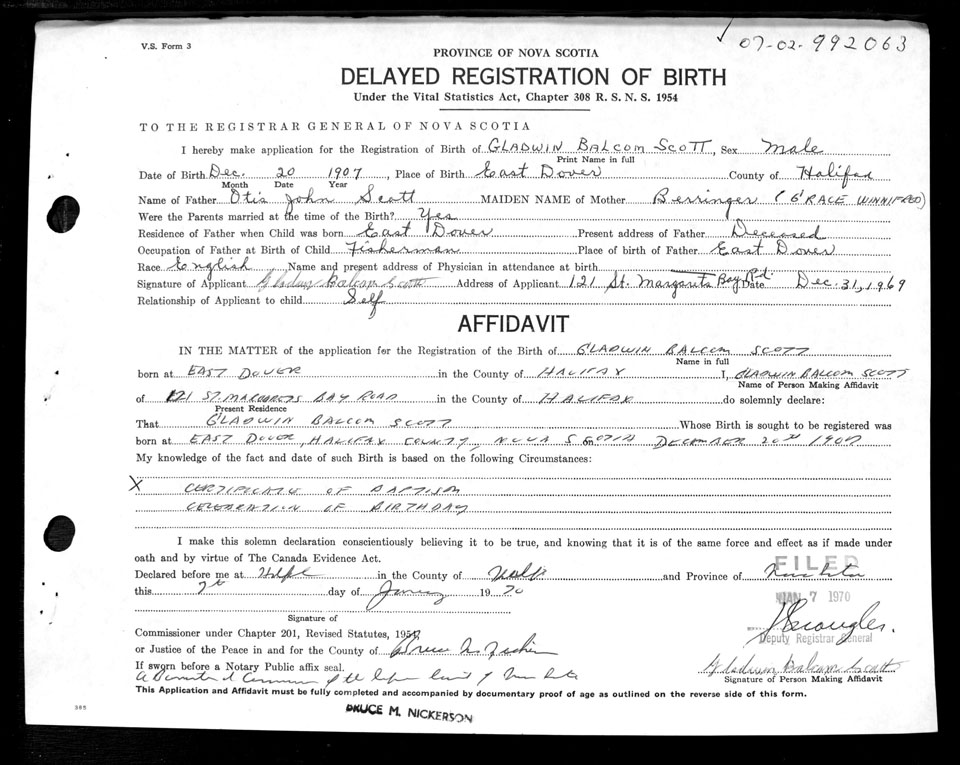 V.S. Form 3
✓ 07-02-992063
PROVINCE OF NOVA SCOTIA
DELAYED REGISTRATION OF BIRTH
Under the Vital Statistics Act, Chapter 308 R. S. N. S. 1954
TO THE REGISTRAR GENERAL OF NOVA SCOTIA
I hereby make application for the Registration of Birth of GLADWIN BALCOM SCOTT, Sex Male
Print Name in full
Date of Birth Dec. 20 1907, Place of Birth East Dover County of Halifax
Month Date Year
Name of Father Otis John Scott MAIDEN NAME of Mother Berringer (GRACE WINNIFRED)
Were the Parents married at the time of the Birth? Yes
Residence of Father when Child was born East Dover Present address of Father Deceased
Occupation of Father at Birth of Child Fisherman Place of birth of Father East Dover
Race English Name and present address of Physician in attendance at birth
Signature of Applicant Gladwin Balcom Scott Address of Applicant 121 St. Margarets Bay Rd. Date Dec. 31, 1969
Relationship of Applicant to child Self
AFFIDAVIT
IN THE MATTER of the application for the Registration of the Birth of GLADWIN BALCOM SCOTT
Name in full
born at EAST DOVER in the County of HALIFAX I, GLADWIN BALCOM SCOTT
Name of Person Making Affidavit
of 121 ST. MARGARETS BAY ROAD in the County of HALIFAX do solemnly declare:
Present Residence
That GLADWIN BALCOM SCOTT Whose Birth is sought to be registered was
born at EAST DOVER, HALIFAX COUNTY, NOVA SCOTIA DECEMBER 20th 1907
My knowledge of the fact and date of such Birth is based on the following Circumstances:
X CERTIFICATE OF BAPTISM
CELEBRATION OF BIRTHDAY
I make this solemn declaration conscientiously believing it to be true, and knowing that it is of the same force and effect as if made under
oath and by virtue of The Canada Evidence Act.
FILED
Declared before me at Hfx in the County of Halfx and Province of Nova Scotia
this 7th day of January 1970
JAN 7 1970
Signature of
Commissioner under Chapter 201, Revised Statutes, 1954,
Deputy Registrar General
or Justice of the Peace in and for the County of Bruce M. Nickerson
If sworn before a Notary Public affix seal.
Gladwin Balcom Scott
A Barrister of the Supreme Court of Nova Scotia
Signature of Person Making Affidavit
This Application and Affidavit must be fully completed and accompanied by documentary proof of age as outlined on the reverse side of this form.
385
BRUCE M. NICKERSON